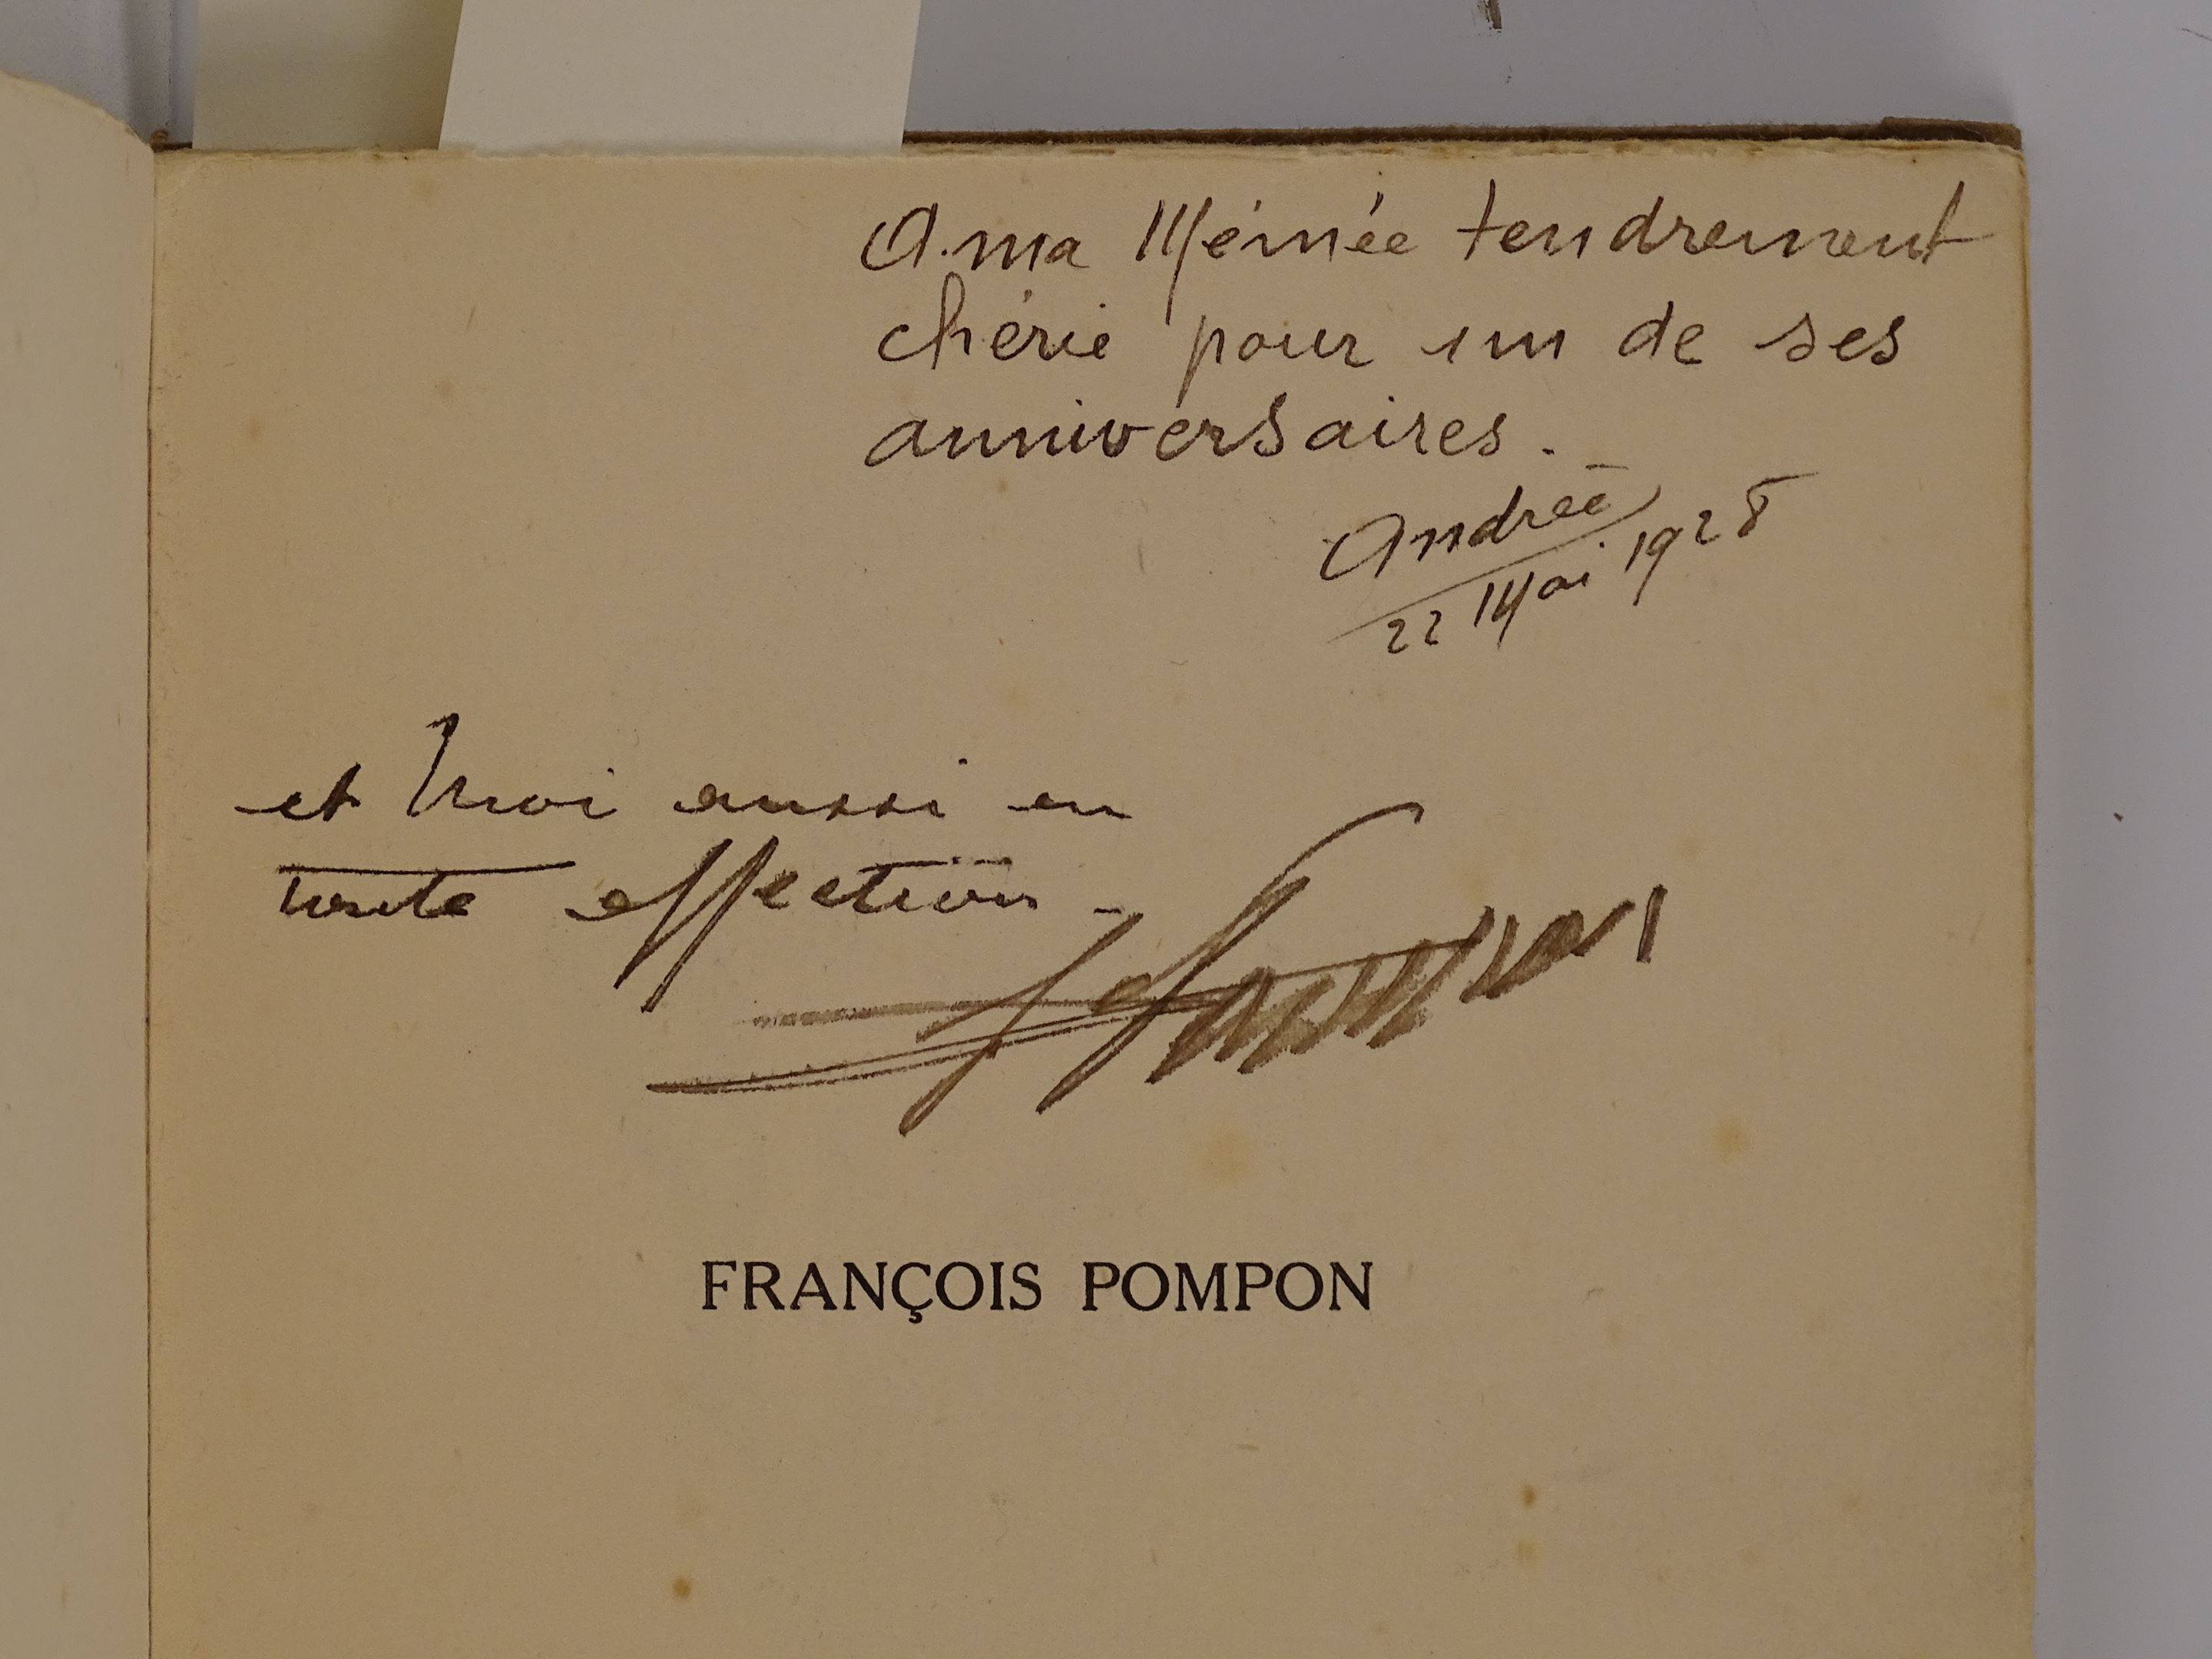 A. ma Mémée tendrement
chérie pour un de ses
anniversaires.
Andrée
22 Mai 1928
et Moi aussi en
toute affection -
FRANÇOIS POMPON